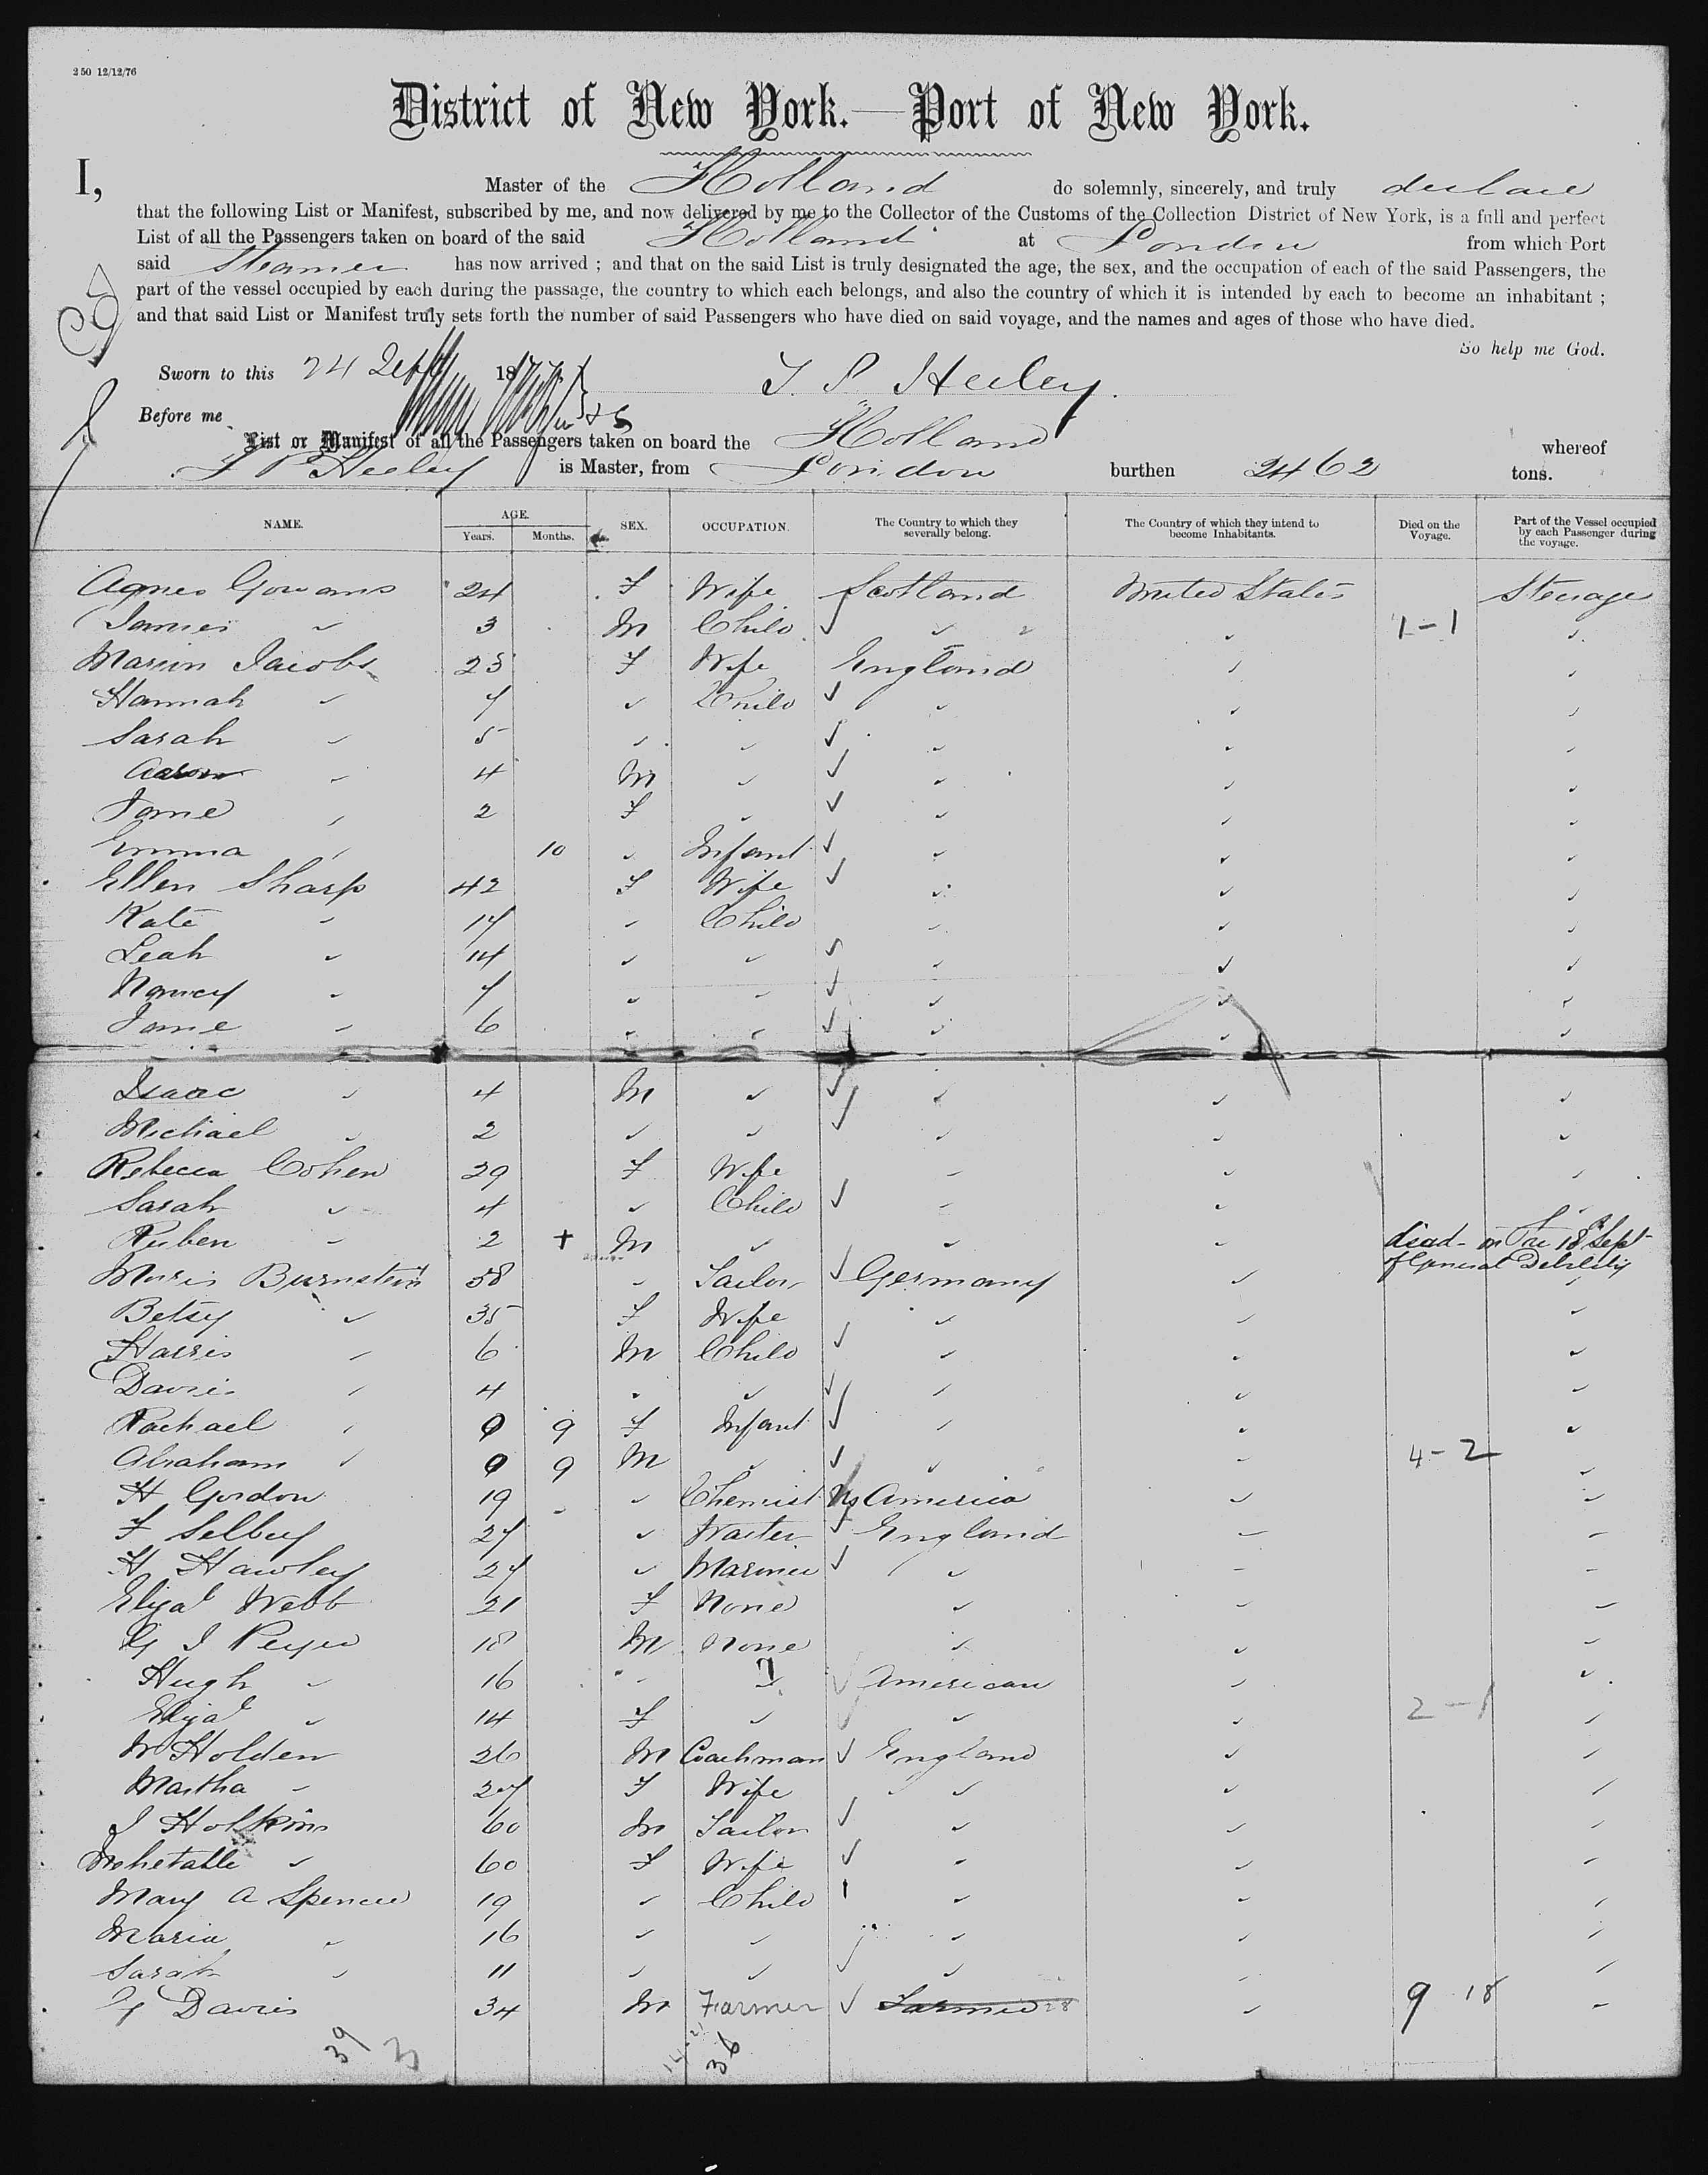 250 12/12/76
District of New York.—Port of New York.
I, Master of the Holland do solemnly, sincerely, and truly declare
that the following List or Manifest, subscribed by me, and now delivered by me to the Collector of the Customs of the Collection District of New York, is a full and perfect
List of all the Passengers taken on board of the said Holland at London from which Port
said Steamer has now arrived ; and that on the said List is truly designated the age, the sex, and the occupation of each of the said Passengers, the
part of the vessel occupied by each during the passage, the country to which each belongs, and also the country of which it is intended by each to become an inhabitant ;
and that said List or Manifest truly sets forth the number of said Passengers who have died on said voyage, and the names and ages of those who have died.
So help me God.
Sworn to this 24 Sept 187
Before me
List or Manifest of all the Passengers taken on board the Holland whereof
Heeley is Master, from London burthen 2462 tons.
NAME. AGE. SEX. OCCUPATION. The Country to which they severally belong. The Country of which they intend to become Inhabitants. Died on the Voyage. Part of the Vessel occupied by each Passenger during the voyage.
Years. Months.
Agnes Gowans 24 F Wife Scotland United States Steerage
James " 3 M Child ✓ " " 1-1 "
Jacobs 23 F Wife England " "
Hannah " 7 " Child ✓ " " "
Sarah " 5 " " ✓ " " "
Aaron " 4 M " ✓ " " "
Jane " 2 F " ✓ " " "
Emma " 10 " Infant ✓ " " "
Ellen Sharp 42 F Wife ✓ " " "
Kate " 17 " Child " " "
Leah " 14 " " ✓ " " "
Nancy " 7 " " ✓ " " "
Jane " 6 " " ✓ " " "
Isaac " 4 M " ✓ " " "
Michael " 2 " " ✓ " " "
Rebecca Cohen 29 F Wife " " "
Sarah " 4 " Child ✓ " " "
Ruben " 2 + M " " " died on the 18 Sept
of General Debility
Moris Burnstein 58 " Tailor ✓ Germany " "
Betsy " 35 F Wife " " "
Harris " 6 M Child ✓ " " "
Davis " 4 " " ✓ " " "
Rachael " 0 9 F Infant ✓ " " "
Abraham " 0 9 M " ✓ " " 4-2 "
H Gordon 19 " Chemist America " "
F Selbey 27 " Waiter ✓ England " "
H Hawley 27 " Mariner ✓ " " "
Eliza Webb 21 F None " " "
18 M None " " "
Hugh " 16 " " ✓ American " "
Eliza " 14 F " ✓ " " 2-1 "
W Holden 26 M Coachman ✓ England " "
Martha " 27 F Wife " " "
J Hotkins 60 M Tailor ✓ " " "
Mehetable " 60 F Wife ✓ " " "
Mary A Spencer 19 " Child " " "
Maria " 16 " " " " "
Sarah " 11 " " ✓ " " "
G Davis 34 M Farmer ✓ " 9 18 "
39 3 36